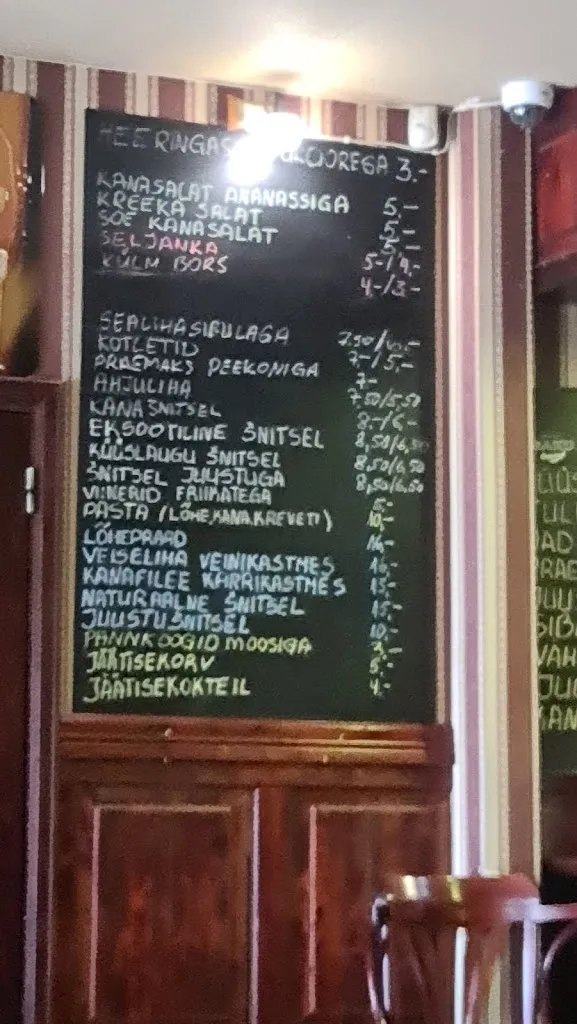 HEERINGAS 3.-
KANASALAT ANANASSIGA 5.-
KREEKA SALAT 5.-
SOE KANASALAT 5.-
SELJANKA 5-/4,-
KÜLM BORS 4-/3.-
SEALIHASIBULAGA
KOTLETID 7-/5,-
PRAEMAKS PEEKONIGA 7-
AHJULIHA 7.50/5,50
KANAŠNITSEL 8-/6-
EKSOOTILINE ŠNITSEL 8,50/6,50
KÜÜSLAUGU ŠNITSEL 8,50/6,50
ŠNITSEL JUUSTUGA 8,50/6,50
VIINERID FRIIKATEGA 5-
PASTA (LÕHE,KANA,KREVETI) 10,-
LÕHEPRAAD 14,-
VEISELIHA VEINIKASTMES 16,-
KANAFILEE KARRIKASTMES 15,-
NATURAALNE ŠNITSEL 15,-
JUUSTUŠNITSEL 10,-
PANNKOOGID MOOSIGA 3,-
JÄÄTISEKORV 5,-
JÄÄTISEKOKTEIL 4,-